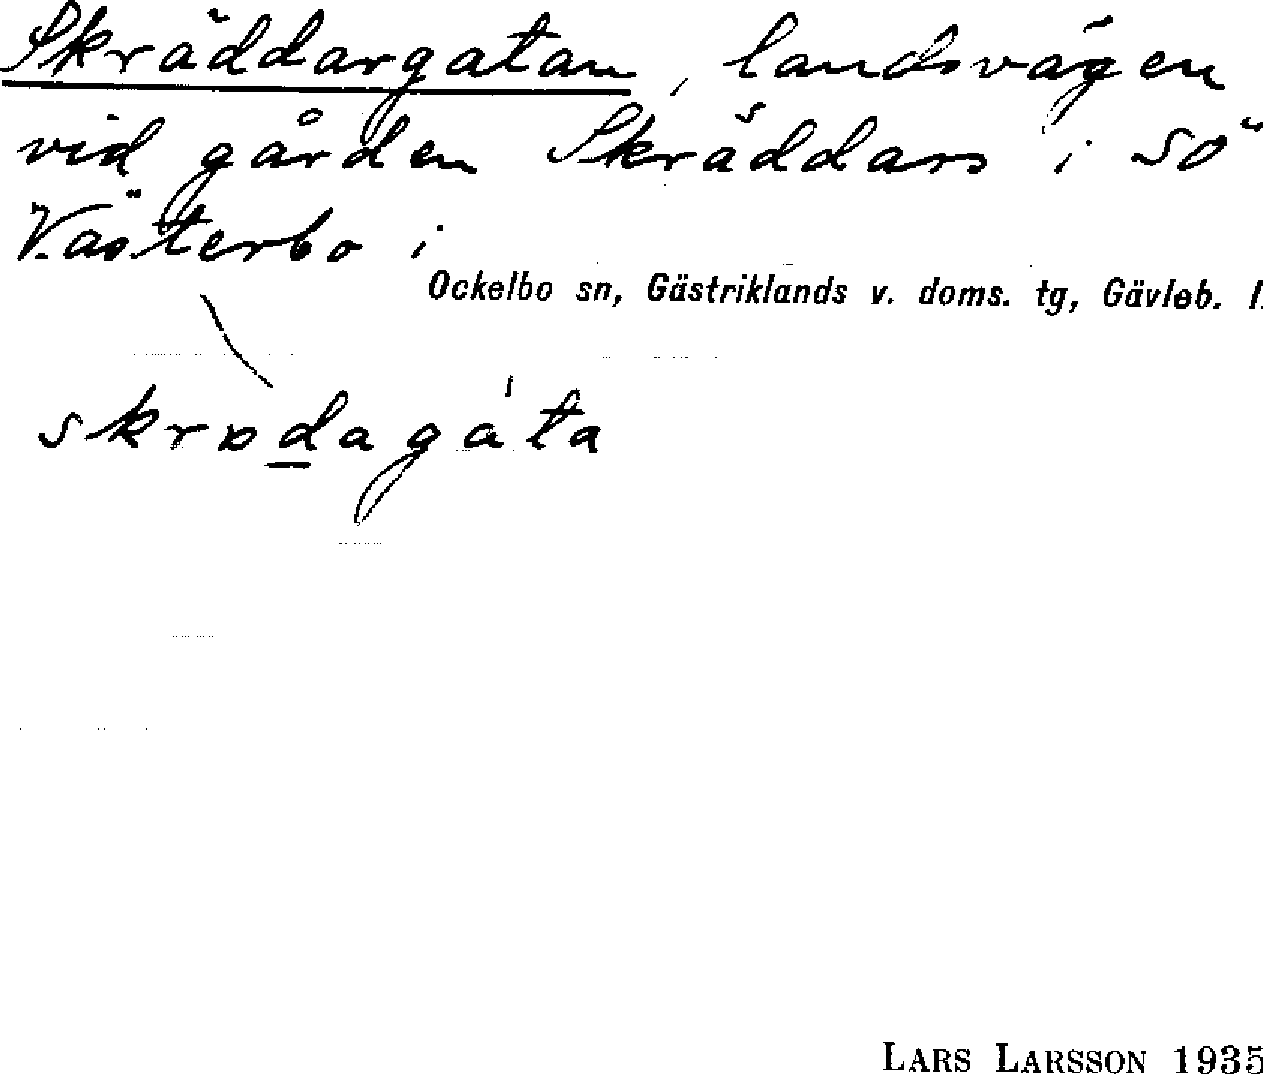 Skräddargatan, landsvägen
vid gården Skräddars i sö
Västerbo i
Ockelbo sn, Gästriklands v. doms. tg, Gävleb. l.
skrɒdagata
LARS LARSSON 1935